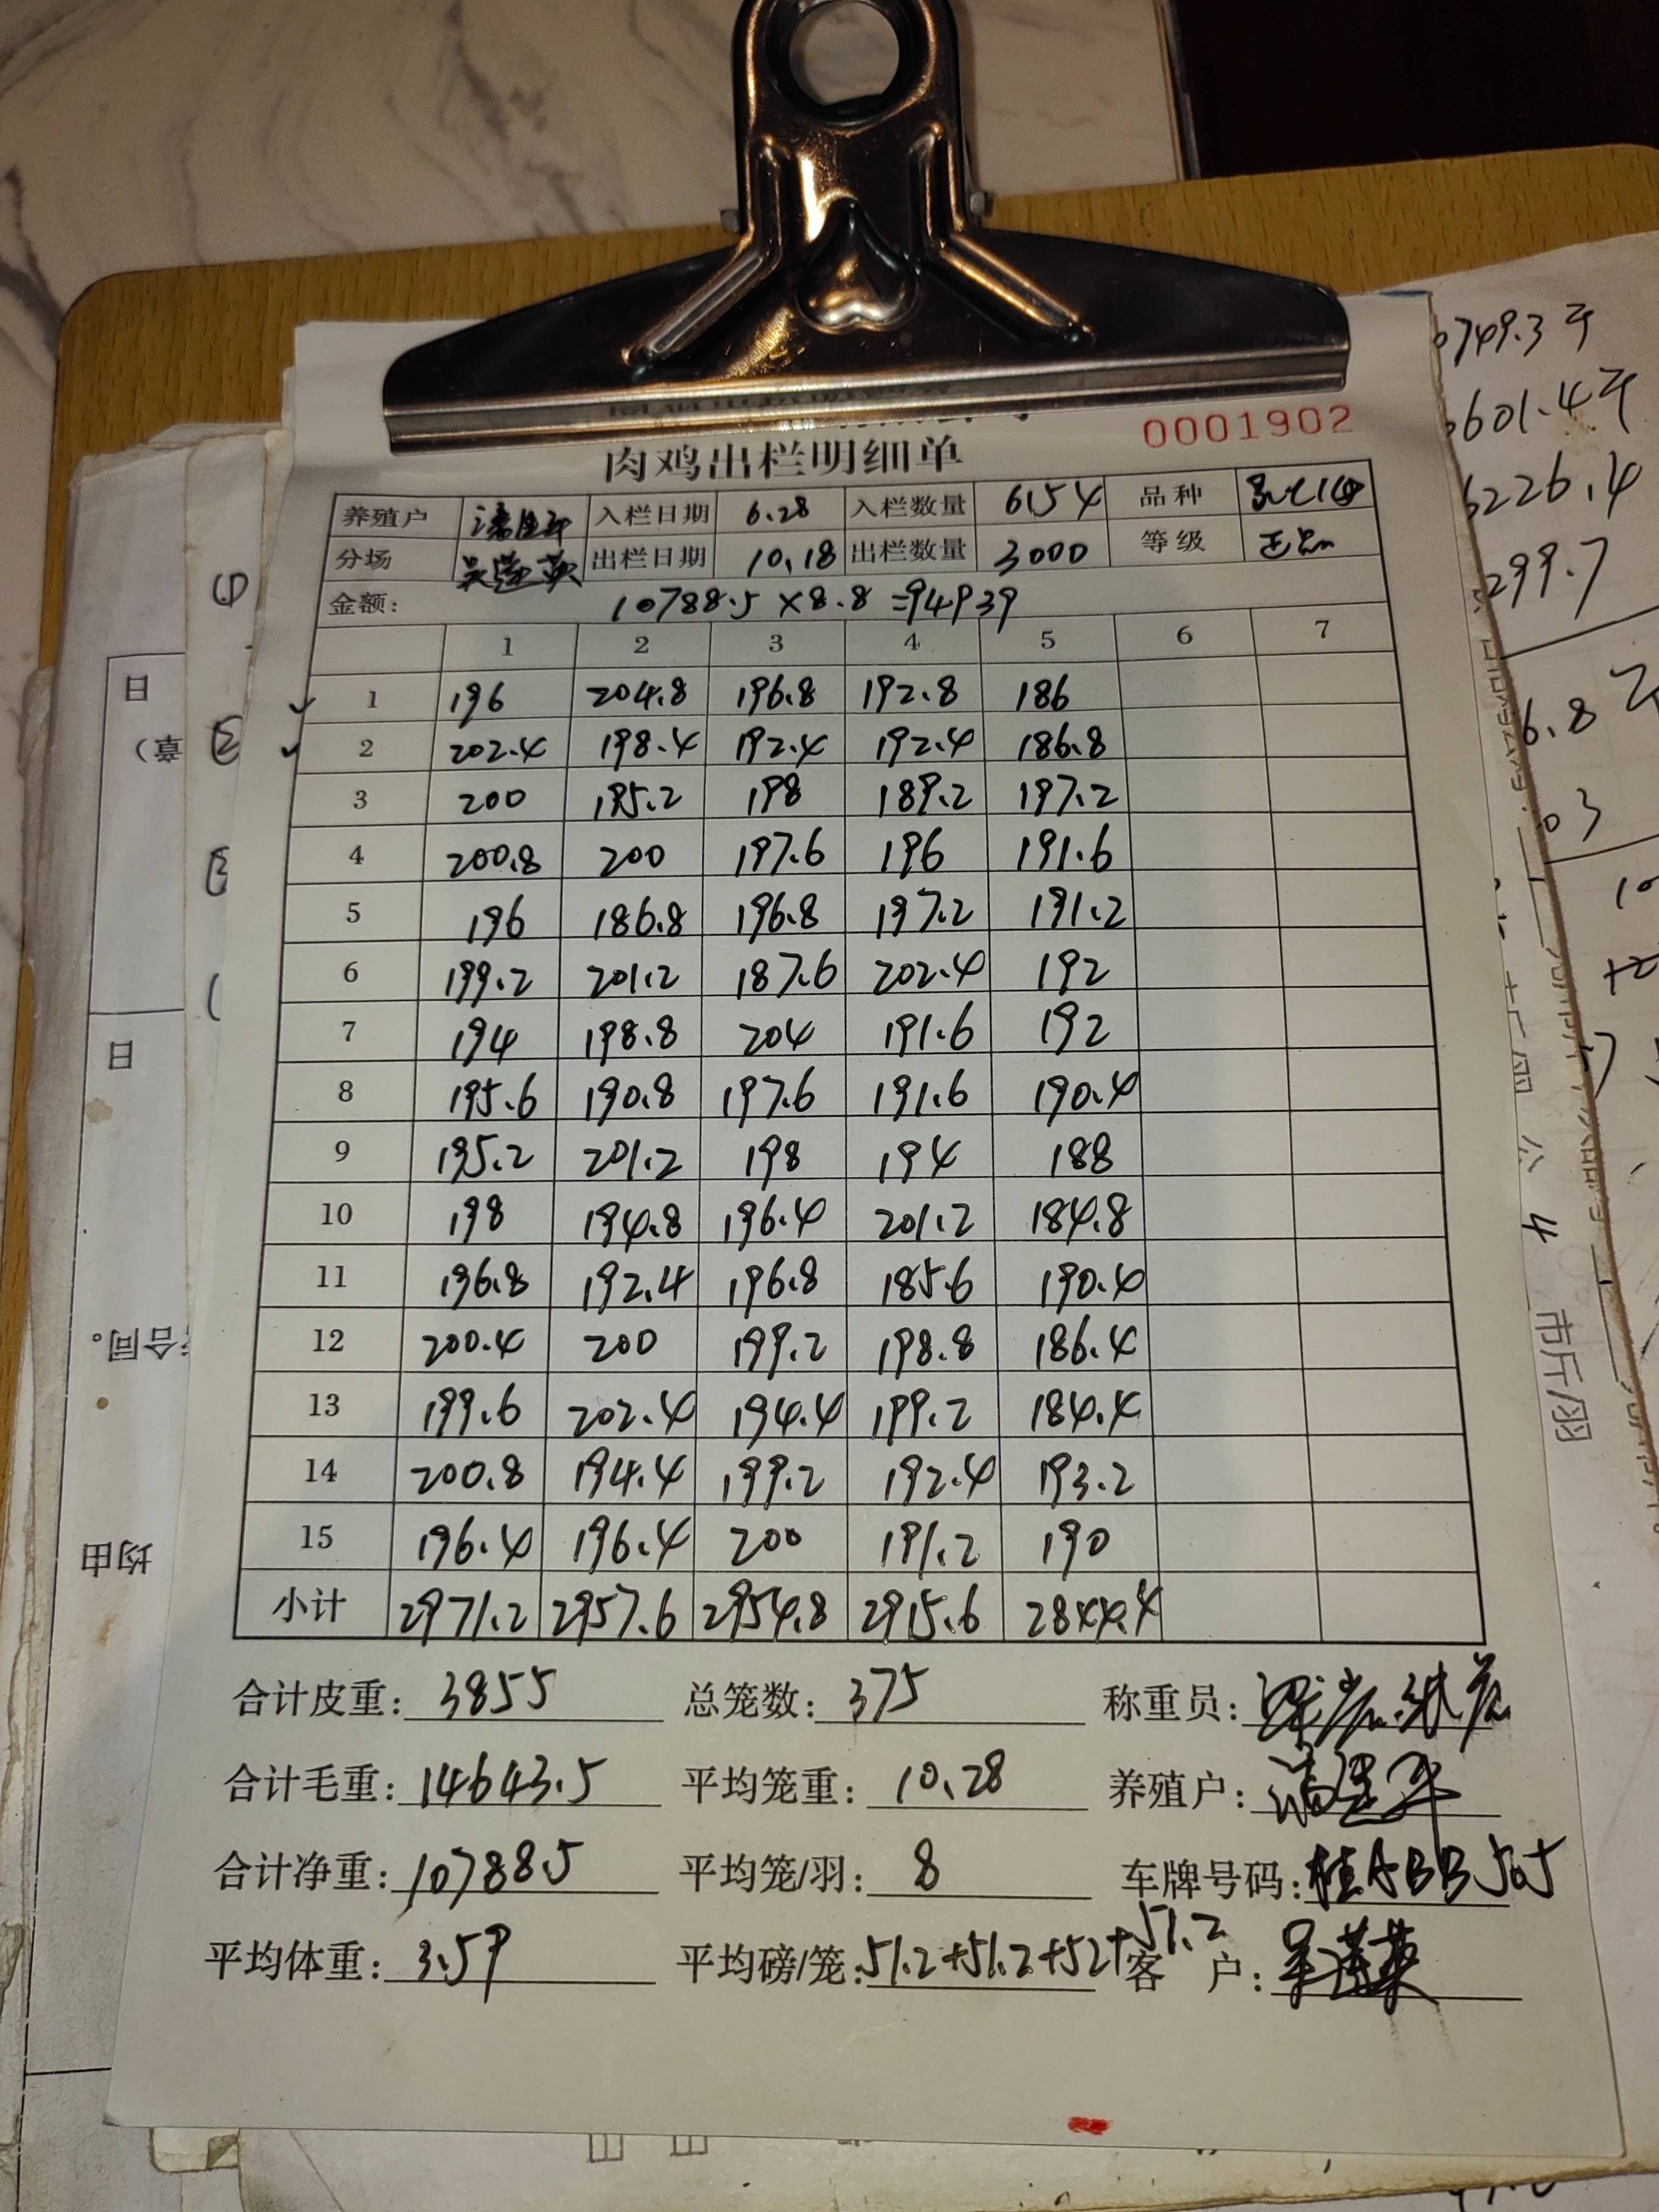 0001902
肉鸡出栏明细单
养殖户 入栏日期 6.28 入栏数量 6154 品种
分场 吴莲英 出栏日期 10.18 出栏数量 3000 等级 正品
金额: 10788.5×8.8=94939
1 2 3 4 5 6 7
1 196 204.8 196.8 192.8 186
2 202.4 198.4 192.4 192.4 186.8
3 200 195.2 198 189.2 197.2
4 200.8 200 197.6 196 191.6
5 196 186.8 196.8 197.2 191.2
6 199.2 201.2 187.6 202.4 192
7 194 198.8 204 191.6 192
8 195.6 190.8 197.6 191.6 190.4
9 195.2 201.2 198 194 188
10 198 194.8 196.4 201.2 184.8
11 196.8 192.4 196.8 185.6 190.4
12 200.4 200 199.2 198.8 186.4
13 199.6 202.4 194.4 199.2 184.4
14 200.8 194.4 199.2 192.4 193.2
15 196.4 196.4 200 191.2 190
小计 2971.2 2957.6 2954.8 2915.6 2844.4
合计皮重: 3855 总笼数: 375 称重员:
合计毛重: 14643.5 平均笼重: 10.28 养殖户:
合计净重: 10788.5 平均笼/羽: 8 车牌号码: 桂ABB505
平均体重: 3.59 平均磅/笼: 51.2+51.2+52+51.2 客户: 吴莲英
749.3
601.4
226.4
299.7
6.8
03
市斤/羽
日
章）
日
合同。
均由